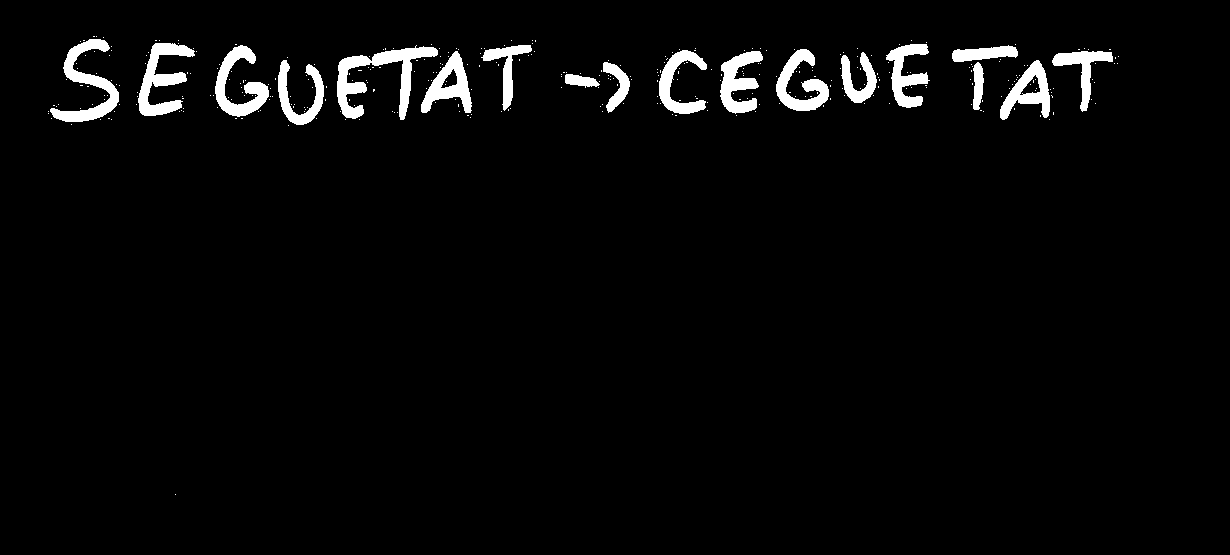 SEGUETAT -> CEGUETAT